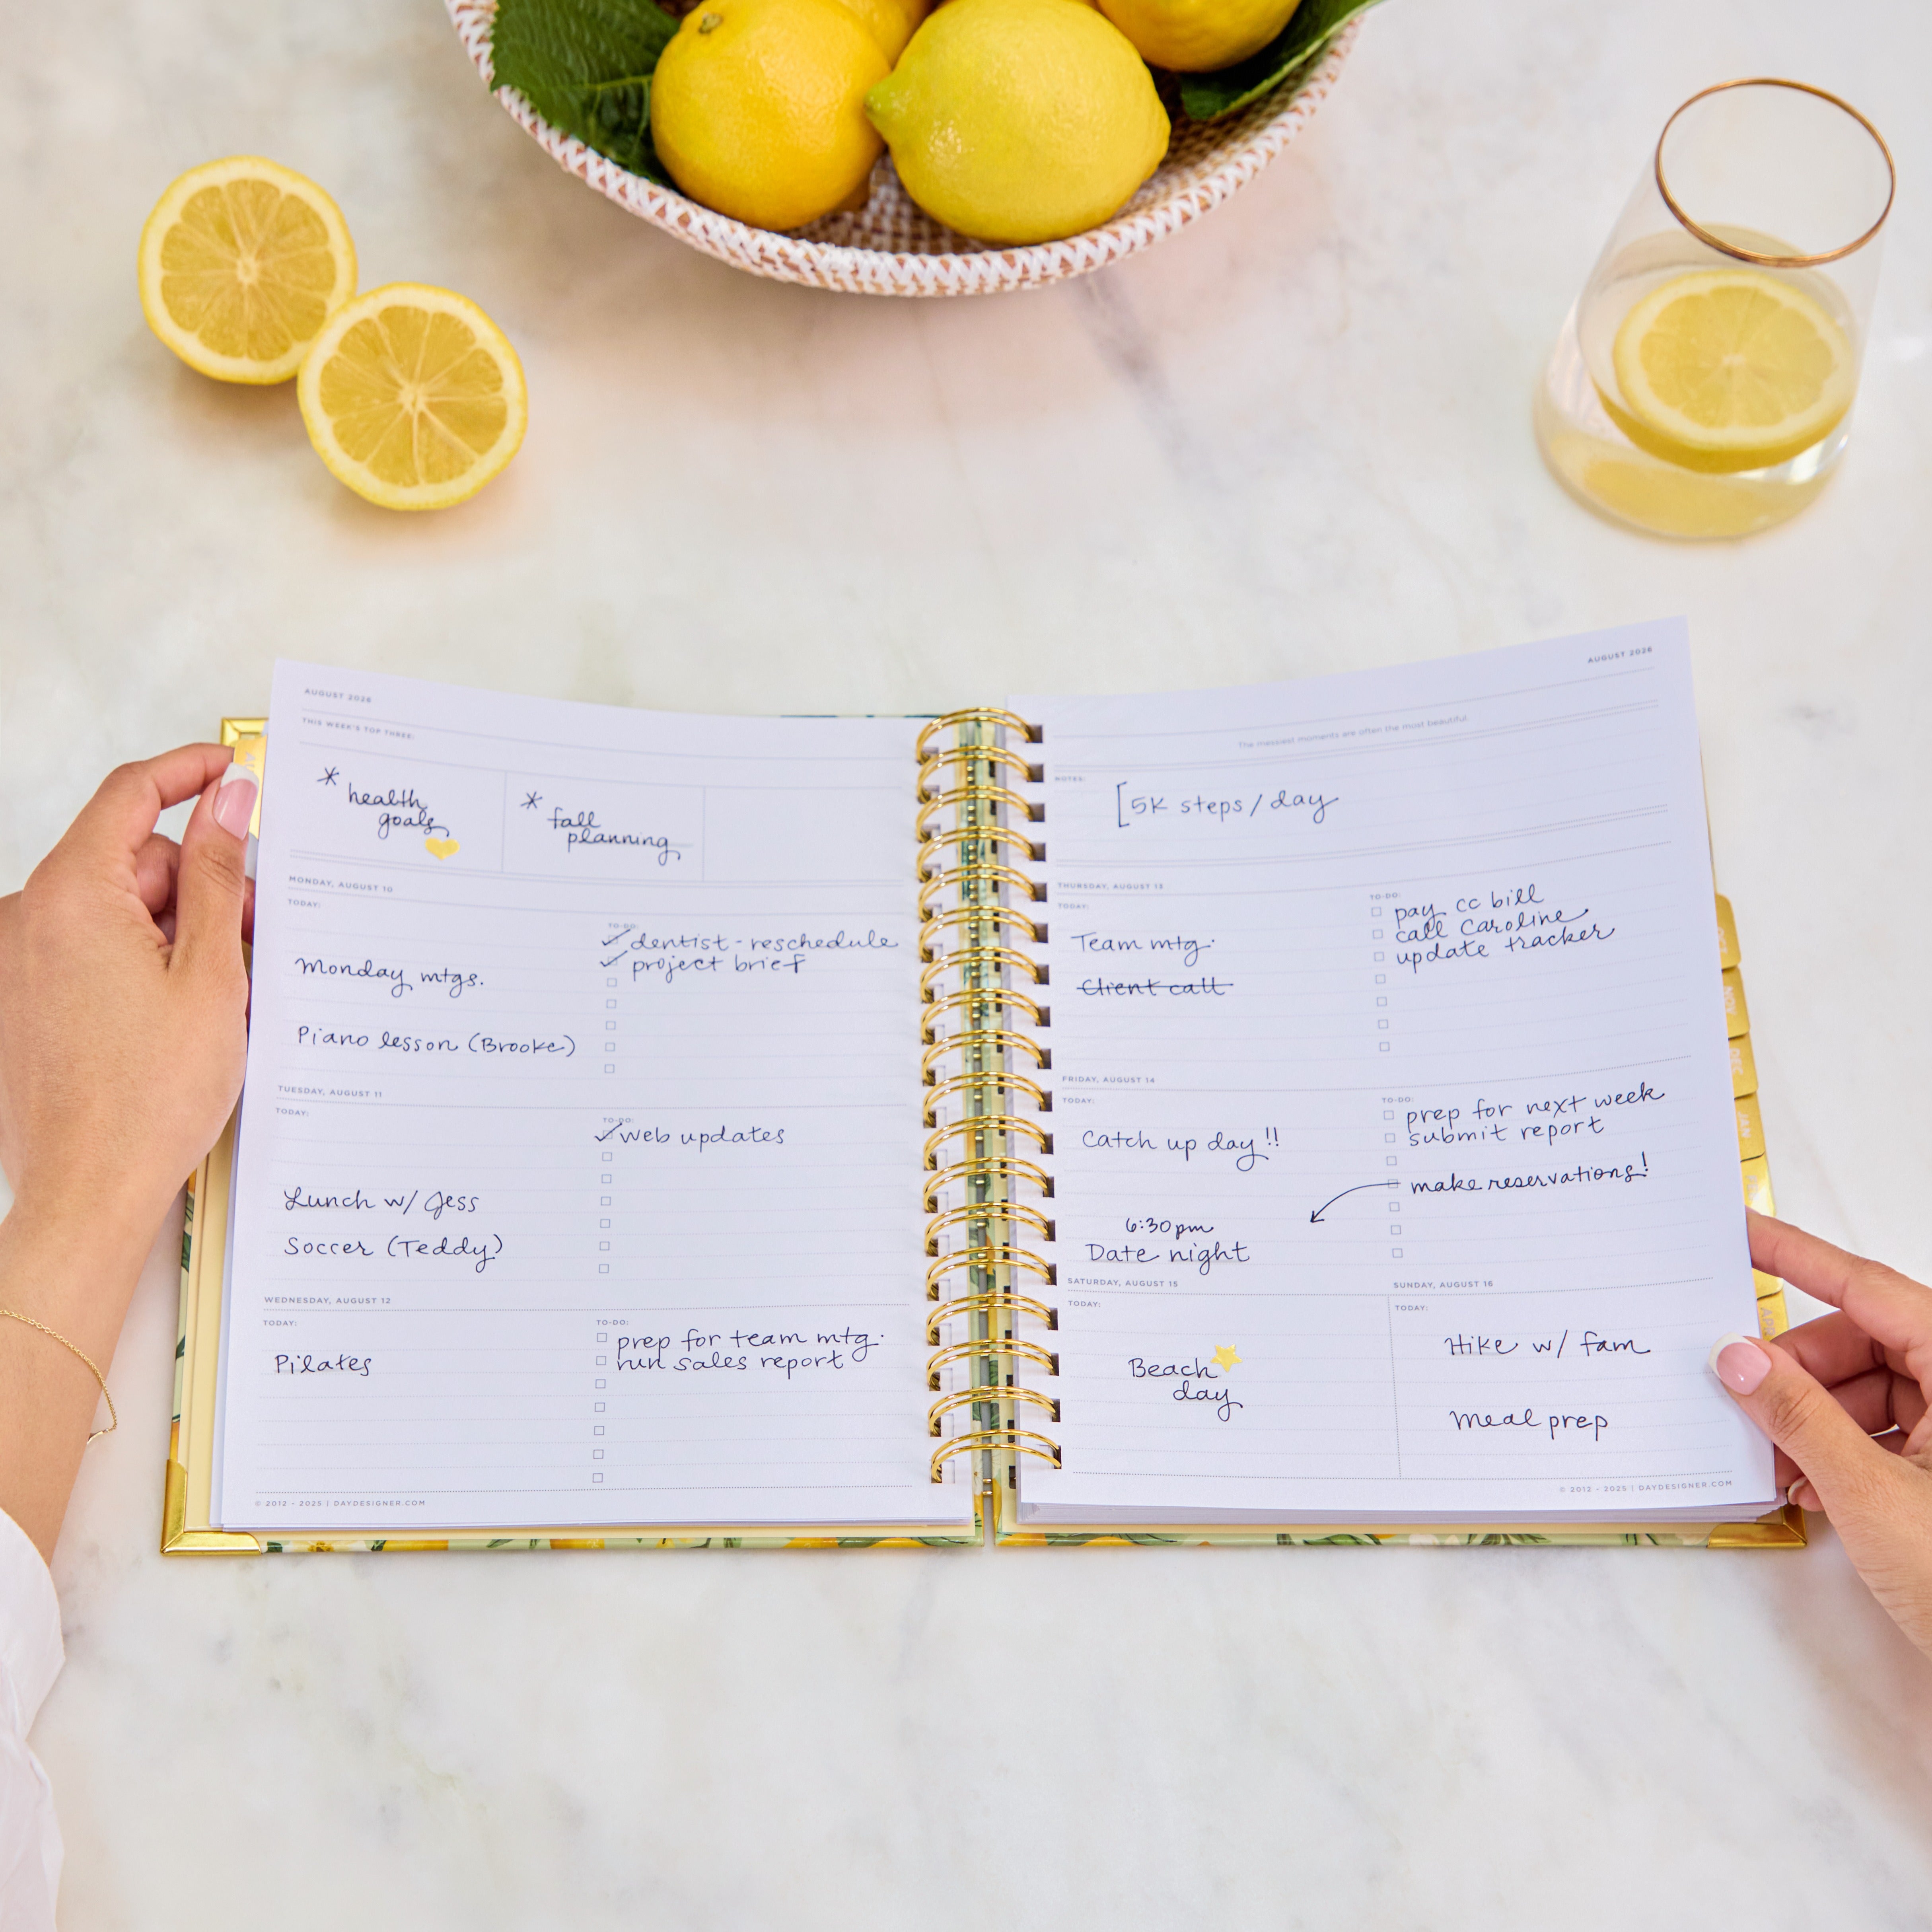 AUGUST 2026
THIS WEEK'S TOP THREE:
* health
goals
* fall
planning
MONDAY, AUGUST 10
TODAY:
Monday mtgs.
Piano lesson (Brooke)
TO-DO:
dentist - reschedule
project brief
TUESDAY, AUGUST 11
TODAY:
Lunch w/ Jess
Soccer (Teddy)
TO-DO:
web updates
WEDNESDAY, AUGUST 12
TODAY:
Pilates
TO-DO:
prep for team mtg.
run sales report
© 2012 - 2025 | DAYDESIGNER.COM
AUGUST 2026
The messiest moments are often the most beautiful.
NOTES:
[5K steps/day
THURSDAY, AUGUST 13
TODAY:
Team mtg.
Client call
TO-DO:
pay cc bill
call Caroline
update tracker
FRIDAY, AUGUST 14
TODAY:
Catch up day !!
6:30pm
Date night
TO-DO:
prep for next week
submit report
make reservations!
SATURDAY, AUGUST 15
TODAY:
Beach
day
SUNDAY, AUGUST 16
TODAY:
Hike w/ fam
Meal prep
© 2012 - 2025 | DAYDESIGNER.COM
NOV
JAN